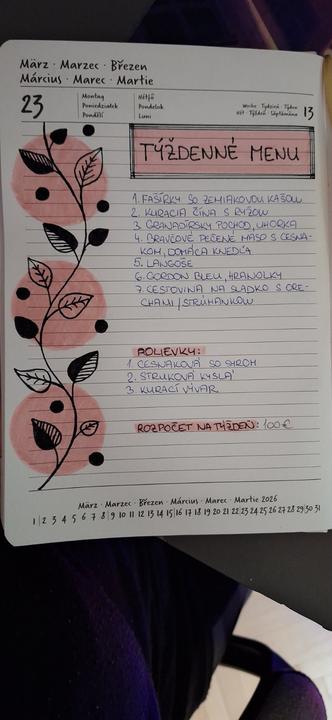 März · Marzec · Březen
Március · Marec · Martie
23
Montag
Poniedziałek
Pondělí
Hétfő
Pondelok
Luni
Woche · Tydzień · Týden
Hét · Týždeň · Săptămâna
13
TÝŽDENNÉ MENU
1. FAŠÍRKY SO ZEMIAKOVOU KAŠOU
2. KURACIA ČÍNA S RYŽOU
3. GRANADÍRSKY POCHOD, UHORKA
4. BRAVČOVÉ PEČENÉ MÄSO S CESNA-
KOM, DOMÁCA KNEDĽA
5. LANGOŠE
6. GORDON BLEU, HRANOLKY
7. CESTOVINA NA SLADKO S ORE-
CHAMI / STRÚHANKOU
POLIEVKY:
1. CESNAKOVÁ SO SYROM
2. STRUKOVÁ KYSLÁ
3. KURACÍ VÝVAR
ROZPOČET NA TÝŽDEŇ: 100€
März · Marzec · Březen · Március · Marec · Martie 2026
1 | 2 3 4 5 6 7 8 | 9 10 11 12 13 14 15 | 16 17 18 19 20 21 22 | 23 24 25 26 27 28 29 | 30 31